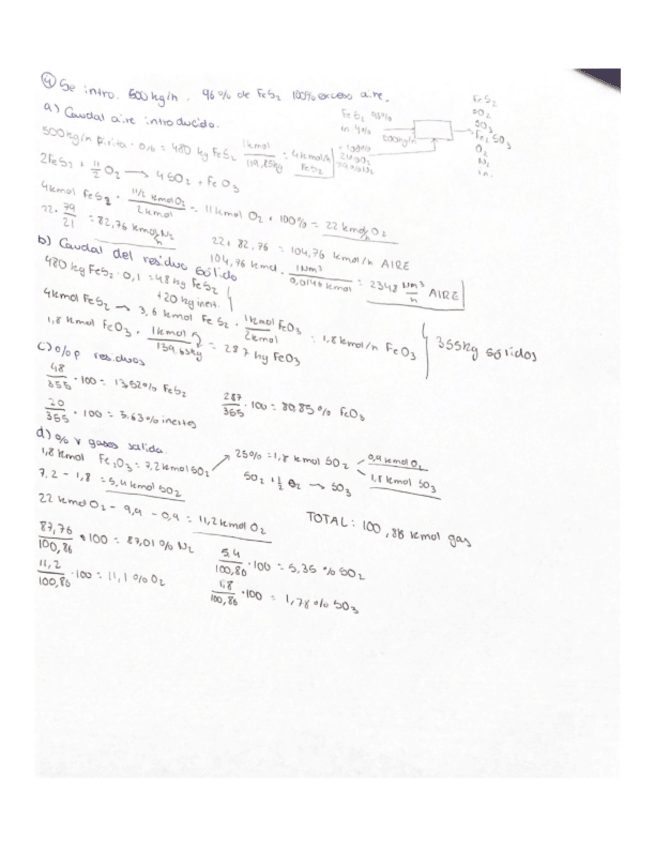 ④ Se intro. 500 kg/h . 96% de FeS₂ 100% exceso aire.
a) Caudal aire introducido.
FeS₂ 96%
in 4%
500kg/h
FeS₂
SO₂
SO₃
O₂
N₂
in.
500kg/h pirita · 0,96 = 480 kg FeS₂ · 1kmol / 119,85kg = 4kmol/h FeS₂
2FeS₂ + 11/2 O₂ → 4SO₂ + FeO₃
4kmol FeS₂ · 11/2 kmol O₂ / 2kmol = 11 kmol O₂ + 100% = 22 kmol/h O₂
22 · 79/21 = 82,76 kmol/h N₂
22 + 82,76 = 104,76 kmol/h AIRE
104,76 kmol · 1Nm³ / kmol = 2348 Nm³/h AIRE
b) Caudal del residuo sólido
480 kg FeS₂ · 0,1 = 48 kg FeS₂
+20 kg inert.
4kmol FeS₂ → 3,6 kmol FeS₂ · 1kmol FeO₃ / 2kmol = 1,8 kmol/h FeO₃
1,8 kmol FeO₃ · = 287 kg FeO₃
355kg sólidos
c) %p residuos
48/355 · 100 = 13,52% FeS₂
287/355 · 100 = 80,85% FeO₃
20/355 · 100 = 5,63% inertes
d) % v gases salida.
1,8 kmol Fe₂O₃ = 7,2 kmol SO₂
25% = 1,8 kmol SO₂
0,9 kmol O₂
1,8 kmol SO₃
7,2 - 1,8 = 5,4 kmol SO₂
SO₂ + 1/2 O₂ → SO₃
22 kmol O₂ - 9,9 - 0,9 = 11,2 kmol O₂
TOTAL: 100,86 kmol gas
87,76/100,86 · 100 = 87,01% N₂
5,4/100,86 · 100 = 5,35 % SO₂
11,2/100,86 · 100 = 11,1% O₂
1,8/100,86 · 100 = 1,78% SO₃